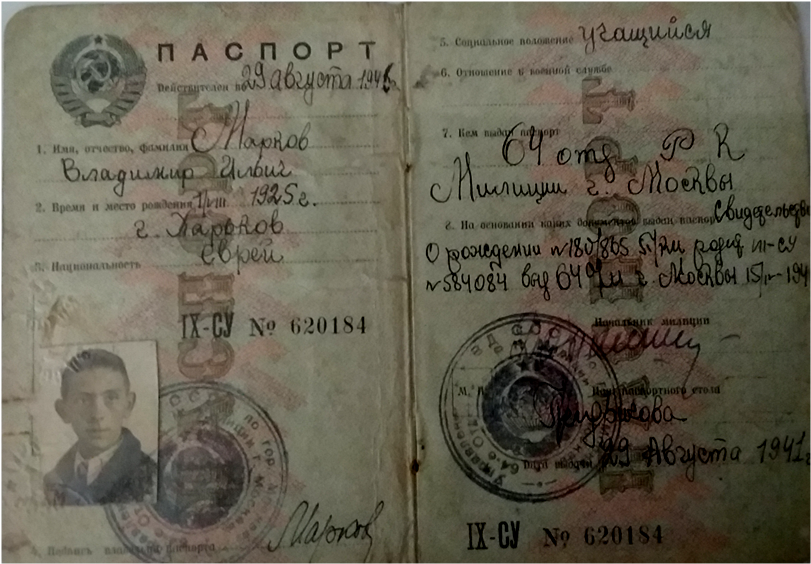 ПАСПОРТ
Действителен по 29 августа 1946
1. Имя, отчество, фамилия Марков
Владимир Ильич
2. Время и место рождения 1/VIII 1925 г.
г. Харьков
3. Национальность еврей
IX-СУ № 620184
Марков
5. Социальное положение учащийся
6. Отношение к военной службе
7. Кем выдан паспорт
64 отд. Р К
Милиции г. Москвы
8. На основании каких документов выдан паспорт Свидетельства
О рождении №180/865 родит III-СУ
№584084 выд 64 о/м г. Москвы
Начальник милиции
М. П.
паспортного стола
Дата выдачи 29 Августа 1941 г.
IX-СУ № 620184